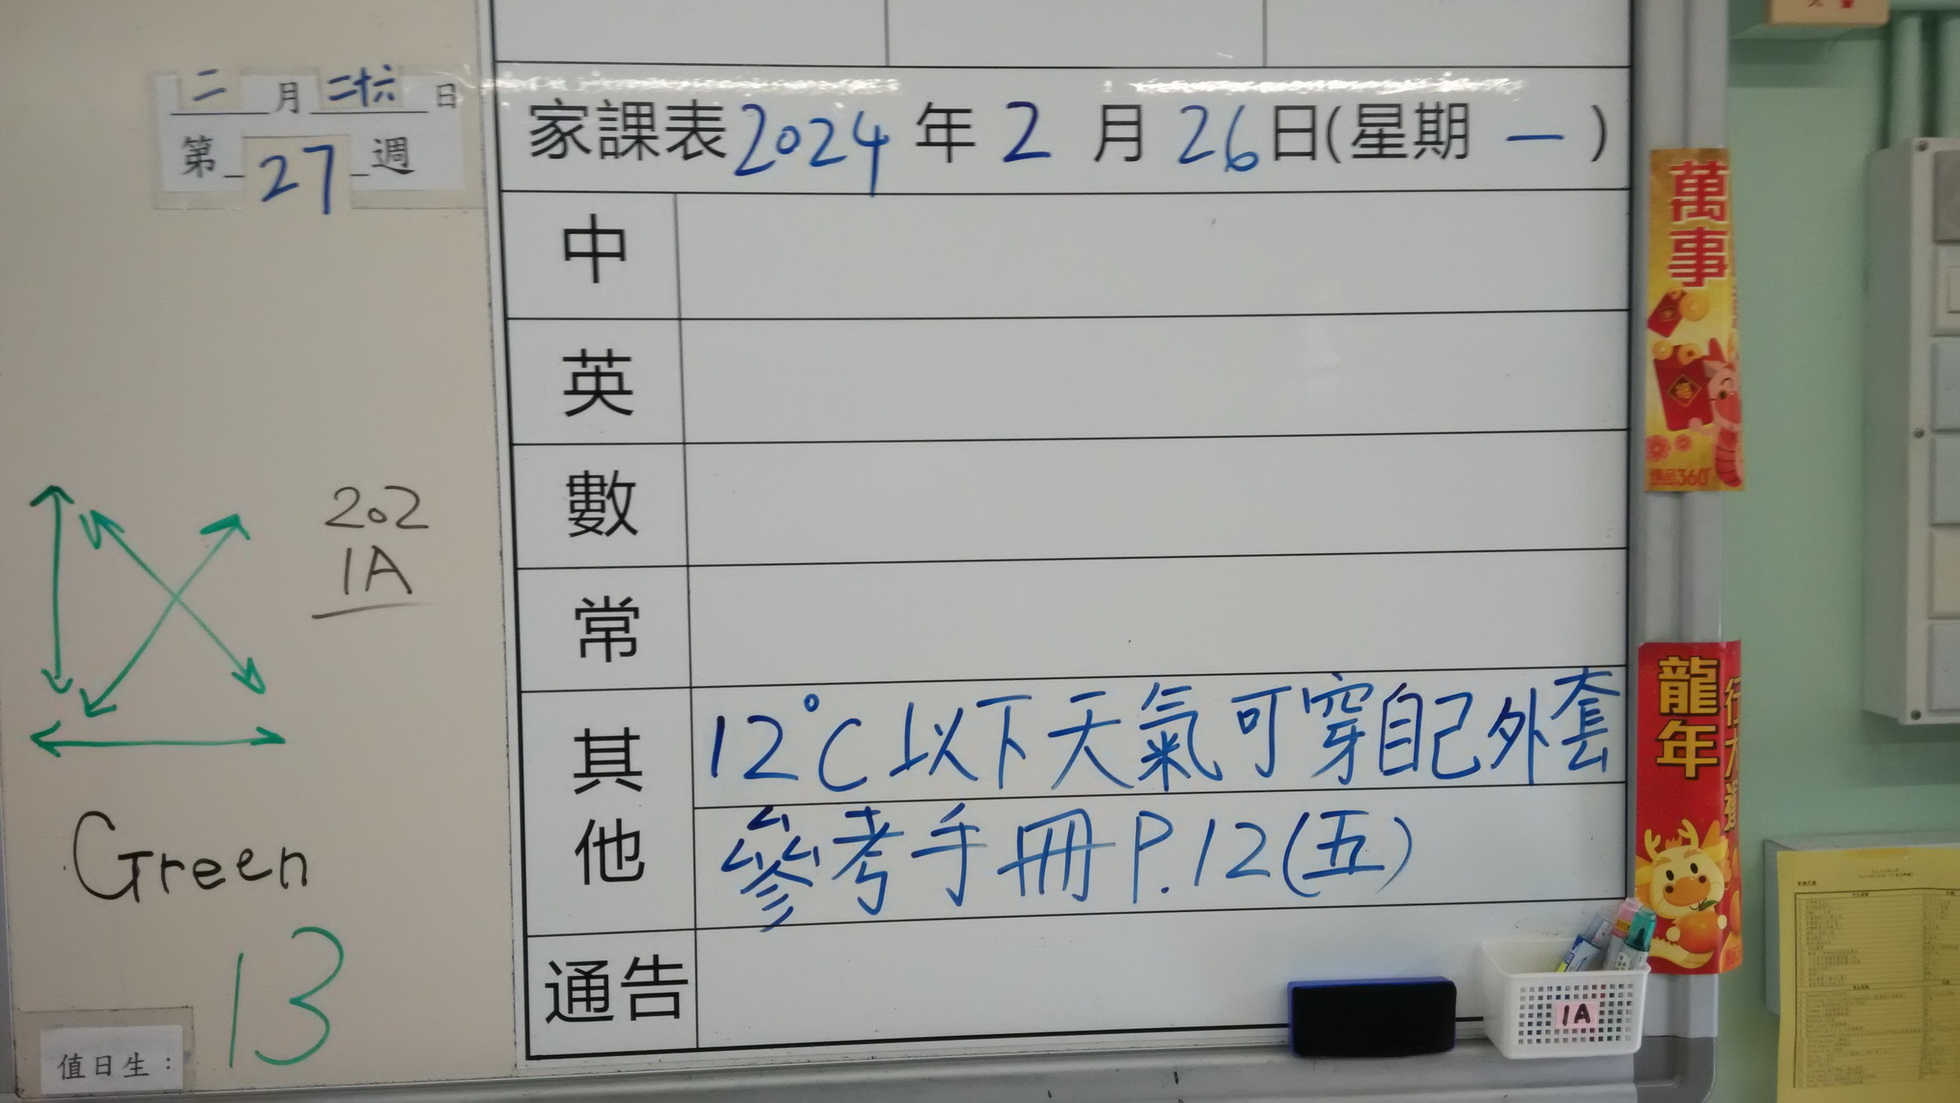 二月二十六日
第27週
家課表2024年2月26日(星期一)
中
英
數
常
其他
12°C以下天氣可穿自己外套
參考手冊P.12(五)
通告
202
1A
Green
13
值日生：
萬事
龍年
1A